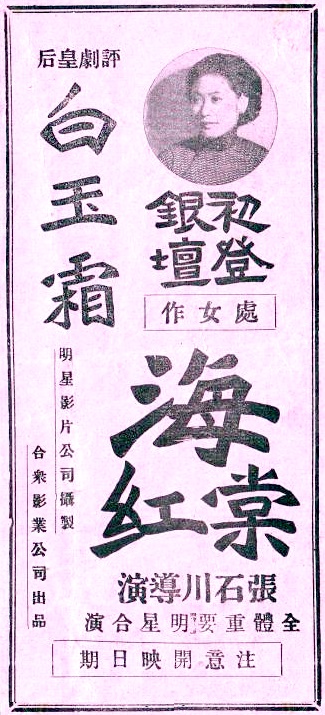 評劇皇后
白玉霜
初登
銀壇
處女作
海
棠紅
明星影片公司攝製
合衆影業公司出品
張石川導演
全體重要明星合演
注意開映日期